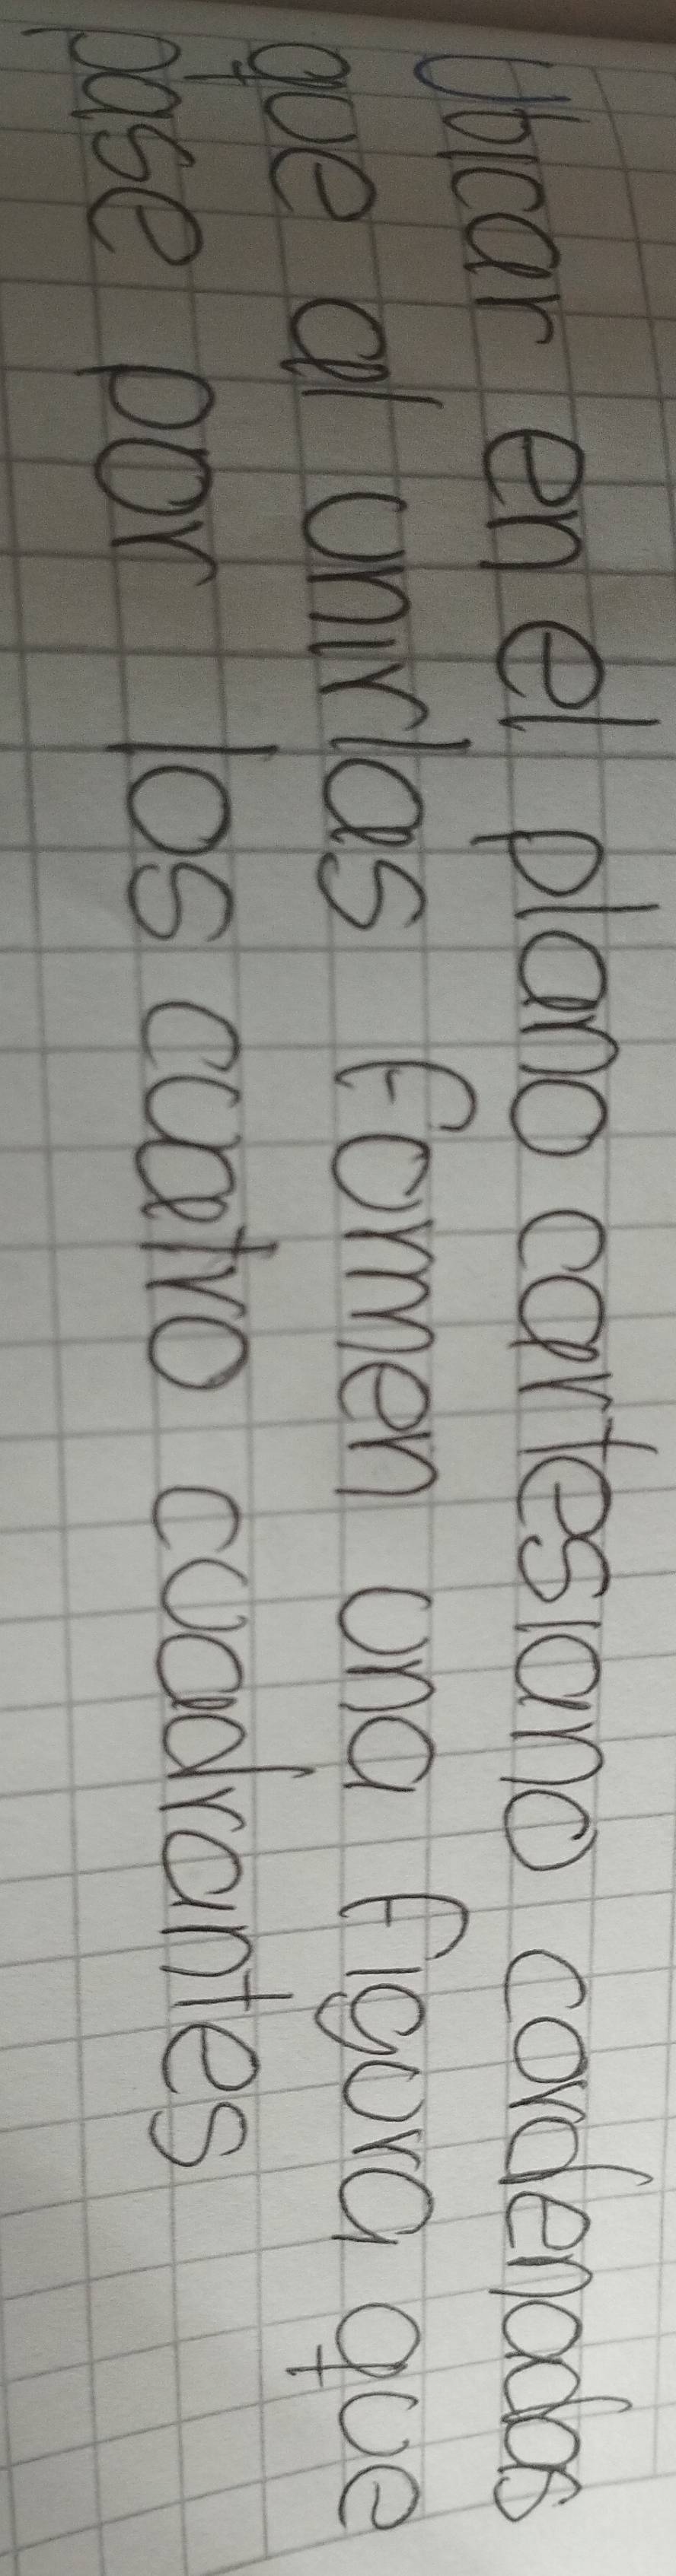 Ubicar en el plano cartesiano cordenadas
que al unirlas formen una figura que
pase por los cuatro cuadrantes